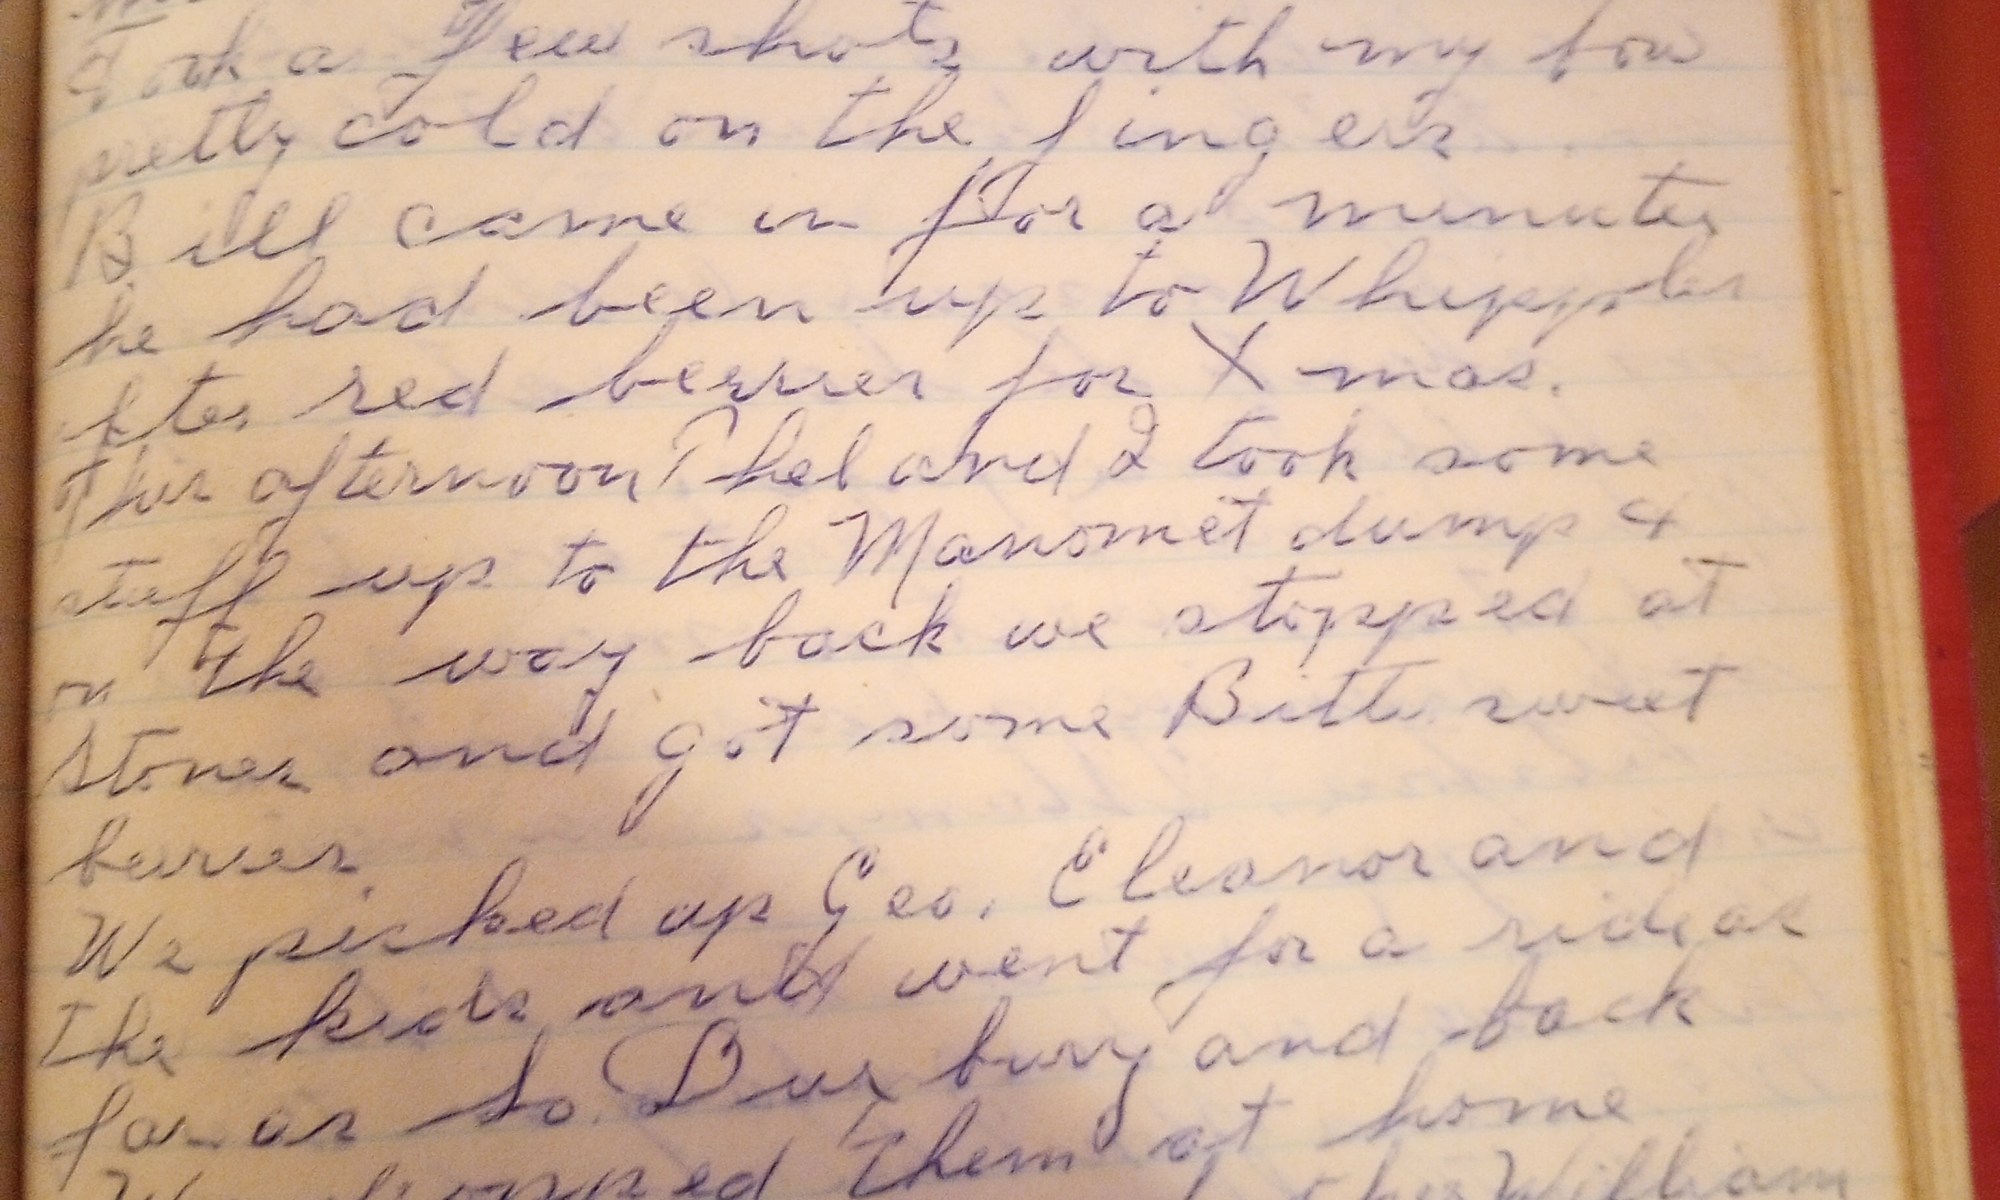 Took a few shots with my bow
pretty cold on the fingers
Bill came in for a minutes
he had been up to Whipples
after red berries for Xmas.
This afternoon Thel and I took some
stuff up to the Manomet dump &
on the way back we stopped at
Stones and got some Bitter sweet
berries.
We picked up Geo. Eleanor and
the kids and went for a ride as
far as So. Duxbury and back
We dropped them at home
William